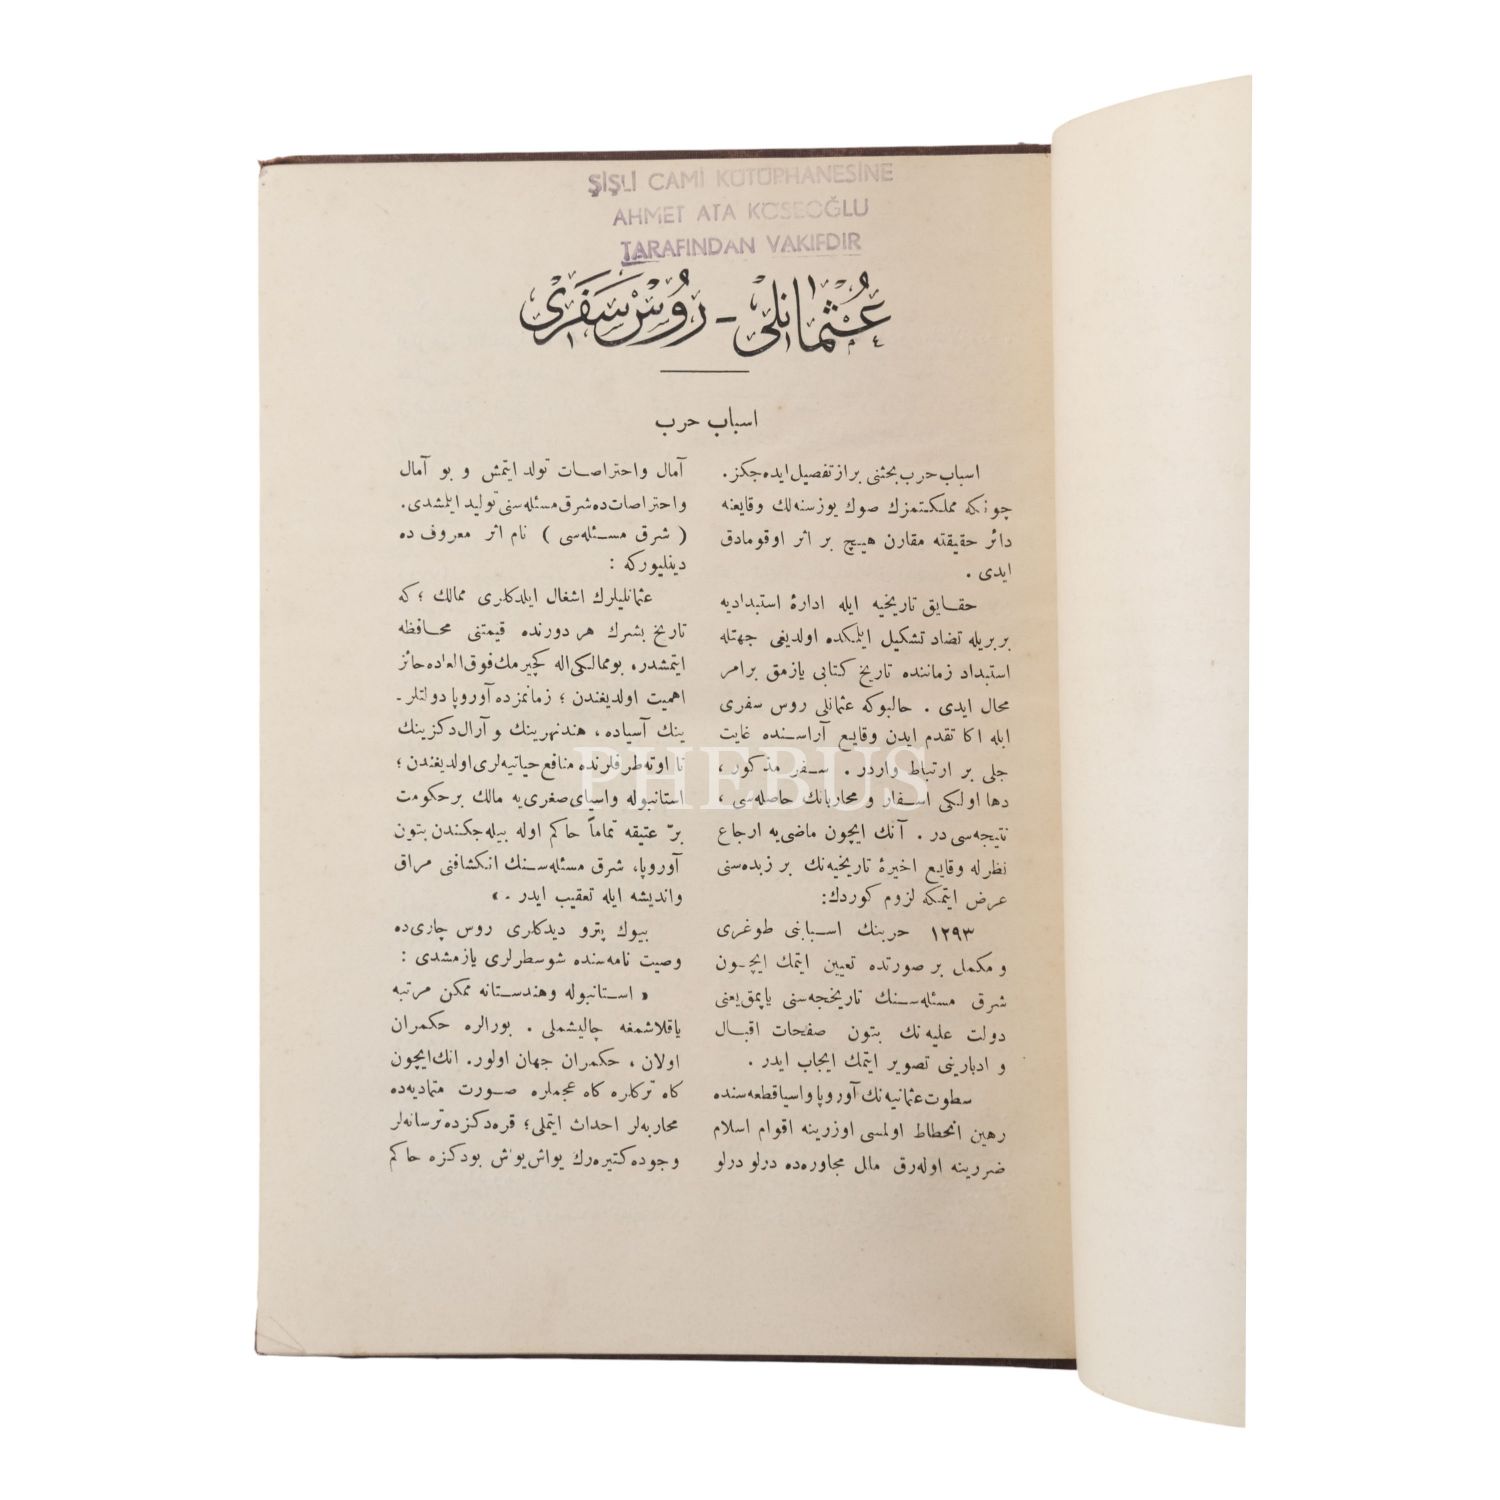 ŞİŞLİ CAMİ KÜTÜPHANESİNE
AHMET ATA KÖSEOĞLU
TARAFINDAN VAKIFDIR
عثمانلی - روس سفری
اسباب حرب
اسباب حرب بحثنی براز تفصیل ایده‌جکز .
چونکه مملکتمزك صوك یوز سنه‌لك وقایعنه
دائر حقیقته مقارن هیچ بر اثر اوقومادق
ایدی .
حقایق تاریخیه ایله ادارهٔ استبدادیه
بربریله تضاد تشکیل ایلمکده اولدیغی جهتله
استبداد زماننده تاریخ کتابی یازمق برامر
محال ایدی . حالبوکه عثمانلی روس سفری
ایله اکا تقدم ایدن وقایع آراسنده غایت
جلی بر ارتباط واردر . سفر مذکور ،
دها اولکی اسفار و محارباتك حاصله‌سی ،
نتیجه‌سی در . آنك ایچون ماضی‌یه ارجاع
نظرله وقایع اخیرهٔ تاریخیه‌نك بر زبده‌سنی
عرض ایتمکه لزوم کوردك:
١٢٩٣ حربنك اسبابنی طوغری
و مکمل بر صورتده تعیین ایتمك ایچون
شرق مسئله‌سنك تاریخچه‌سنی یاپمق یعنی
دولت علیه‌نك بتون صفحات اقبال
و ادبارینی تصویر ایتمك ایجاب ایدر .
سطوت عثمانیه‌نك آوروپا و اسیا قطعه‌سنده
رهین انحطاط اولمسی اوزرینه اقوام اسلام
ضررینه اوله‌رق ملل مجاوره‌ده درلو درلو
آمال و احتراصات تولد ایتمش و بو آمال
واحتراصات‌ده شرق مسئله‌سنی تولید ایلمشدی.
( شرق مسئله‌سی ) نام اثر معروف ده
دینلیورکه :
عثمانلیلرك اشغال ایلدکلری ممالك ؛ که
تاریخ بشرك هر دورنده قیمتنی محافظه
ایتمشدر. بو ممالکی اله کچیرمك فوق‌العاده حائز
اهمیت اولدیغندن ؛ زمانمزده آوروپا دولتلر -
ینك آسیاده ، هند نهرینك و آرال دکزینك
تا اوته طرفلرنده منافع حیاتیه‌لری اولدیغندن ؛
استانبوله و اسیای صغری‌یه مالك بر حکومت
برّ عتیقه تماماً حاکم اوله بیله‌جکندن بتون
آوروپا، شرق مسئله‌سنك انکشافنی مراق
و اندیشه ایله تعقیب ایدر . »
بیوك پترو دیدکلری روس چاری‌ده
وصیت نامه‌سنده شو سطرلری یازمشدی :
« استانبوله و هندستانه ممکن مرتبه
یاقلاشمغه چالیشملی . بورالره حکمران
اولان ، حکمران جهان اولور. انك ایچون
کاه ترکلره کاه عجملره صورت متمادیه‌ده
محاربه‌لر احداث ایتملی؛ قره دکزده ترسانه‌لر
وجوده کتیره‌رك یواش یواش بو دکزه حاکم
PHEBUS